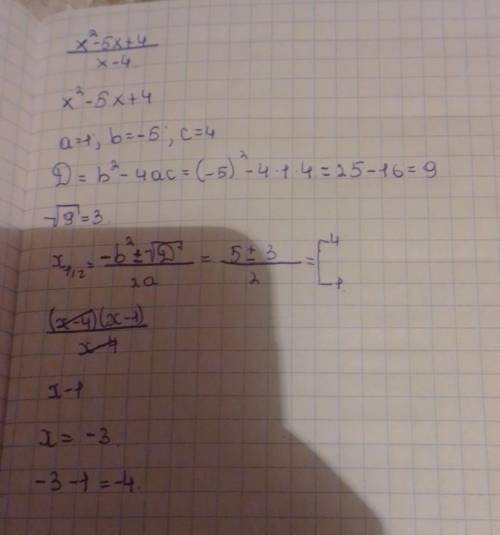 x²-5x+4
x-4
x²-5x+4
a=1; b=-5; c=4
D = b²-4ac = (-5)²-4·1·4 = 25-16 = 9
√9=3.
x₁/₂ = -b²±√D / 2a = 5±3 / 2 = [4 1
(x-4)(x-1)
x-4
x-1
x = -3.
-3-1=-4.